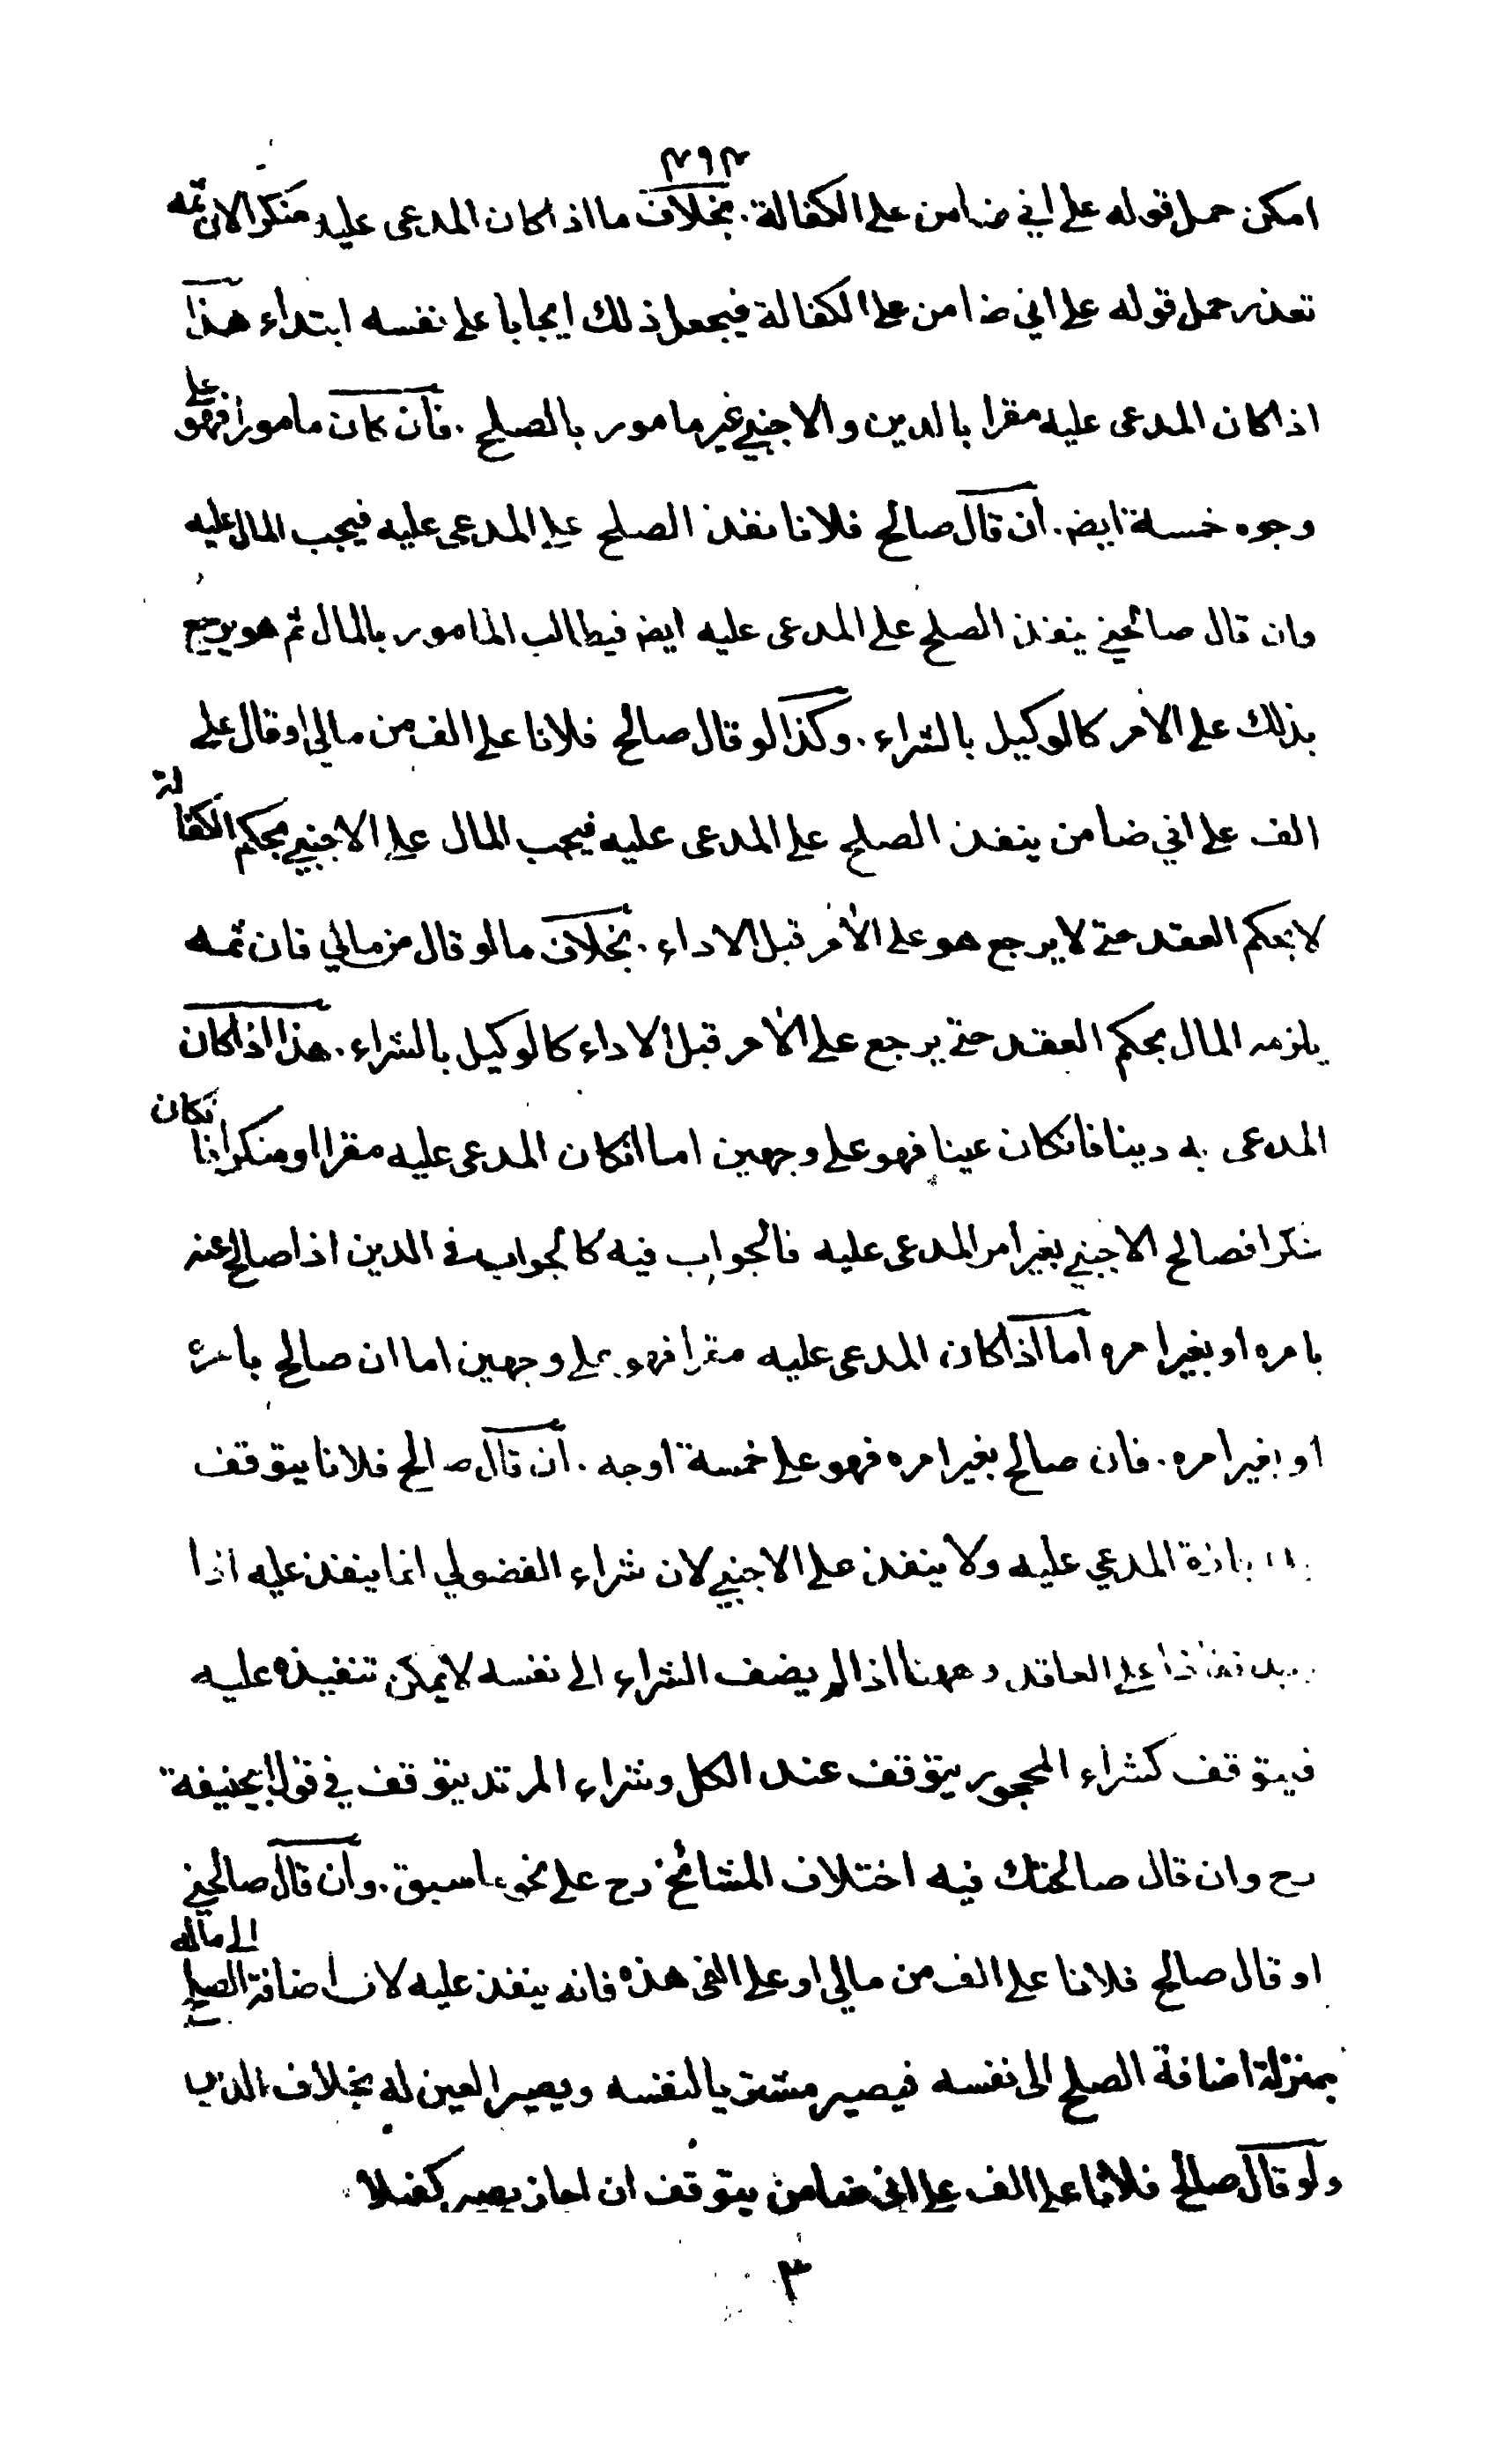 ٣٩٣
امكن حمل قوله على اني ضامن على الكفالة. بخلاف ما اذا كان المدعى عليه منكرا لان ثمه
تعذر حمل قوله على اني ضامن على الكفالة فيجعل ذلك ايجابا على نفسه ابتداء هذا
اذا كان المدعى عليه مقرا بالدين والاجنبي غير مامور بالصلح. فان كان مامورا فهو على
وجوه خمسة ايض. ان قال صالح فلانا نفذ الصلح على المدعى عليه فيجب المال عليه
وان قال صالحني ينفذ الصلح على المدعى عليه ايض فيطالب المامور بالمال ثم هو يرجع
بذلك على الآمر كالوكيل بالشراء. وكذا لو قال صالح فلانا على الف من مالي او قال على
الف على اني ضامن ينفذ الصلح على المدعى عليه فيجب المال على الاجنبي بحكم الكفالة
لا بحكم العقد حتى لا يرجع هو على الآمر قبل الاداء. بخلاف ما لو قال من مالي فان ثمه
يلزمه المال بحكم العقد حتى يرجع على الآمر قبل الاداء كالوكيل بالشراء. هذا اذا كان
المدعى به دينا فانكان عينا فهو على وجهين اما انكان المدعى عليه مقرا او منكرا فانكان
منكرا فصالح الاجنبي بغير امر المدعى عليه فالجواب فيه كالجواب في الدين اذا صالح عنه
بامره او بغير امره اما اذا كان المدعى عليه مقرا فهو على وجهين اما ان صالح بامره
او بغير امره. فان صالح بغير امره فهو على خمسة اوجه. ان قال صالح فلانا يتوقف
المدعي عليه ولا ينفذ على الاجنبي لان شراء الفضولي انما ينفذ عليه اذا
نفاذا على العاقد وههنا اذا لم يضف الشراء الى نفسه لا يمكن تنفيذه عليه
فيتوقف كشراء المحجور يتوقف عند الكل وشراء المرتد يتوقف في قول ابيحنيفة
رح وان قال صالحتك فيه اختلاف المشائخ رح على نحو ما سبق. وان قال صالحني
او قال صالح فلانا على الف من مالي او على الفي هذه فانه ينفذ عليه لان اضافة الصلح الى ماله
بمنزلة اضافة الصلح الى نفسه فيصير مشتريا لنفسه ويصير العين له بخلاف الدين
ولو قال صالح فلانا على الف على اني ضامن يتوقف ان اجاز يصير كفيلا
٣